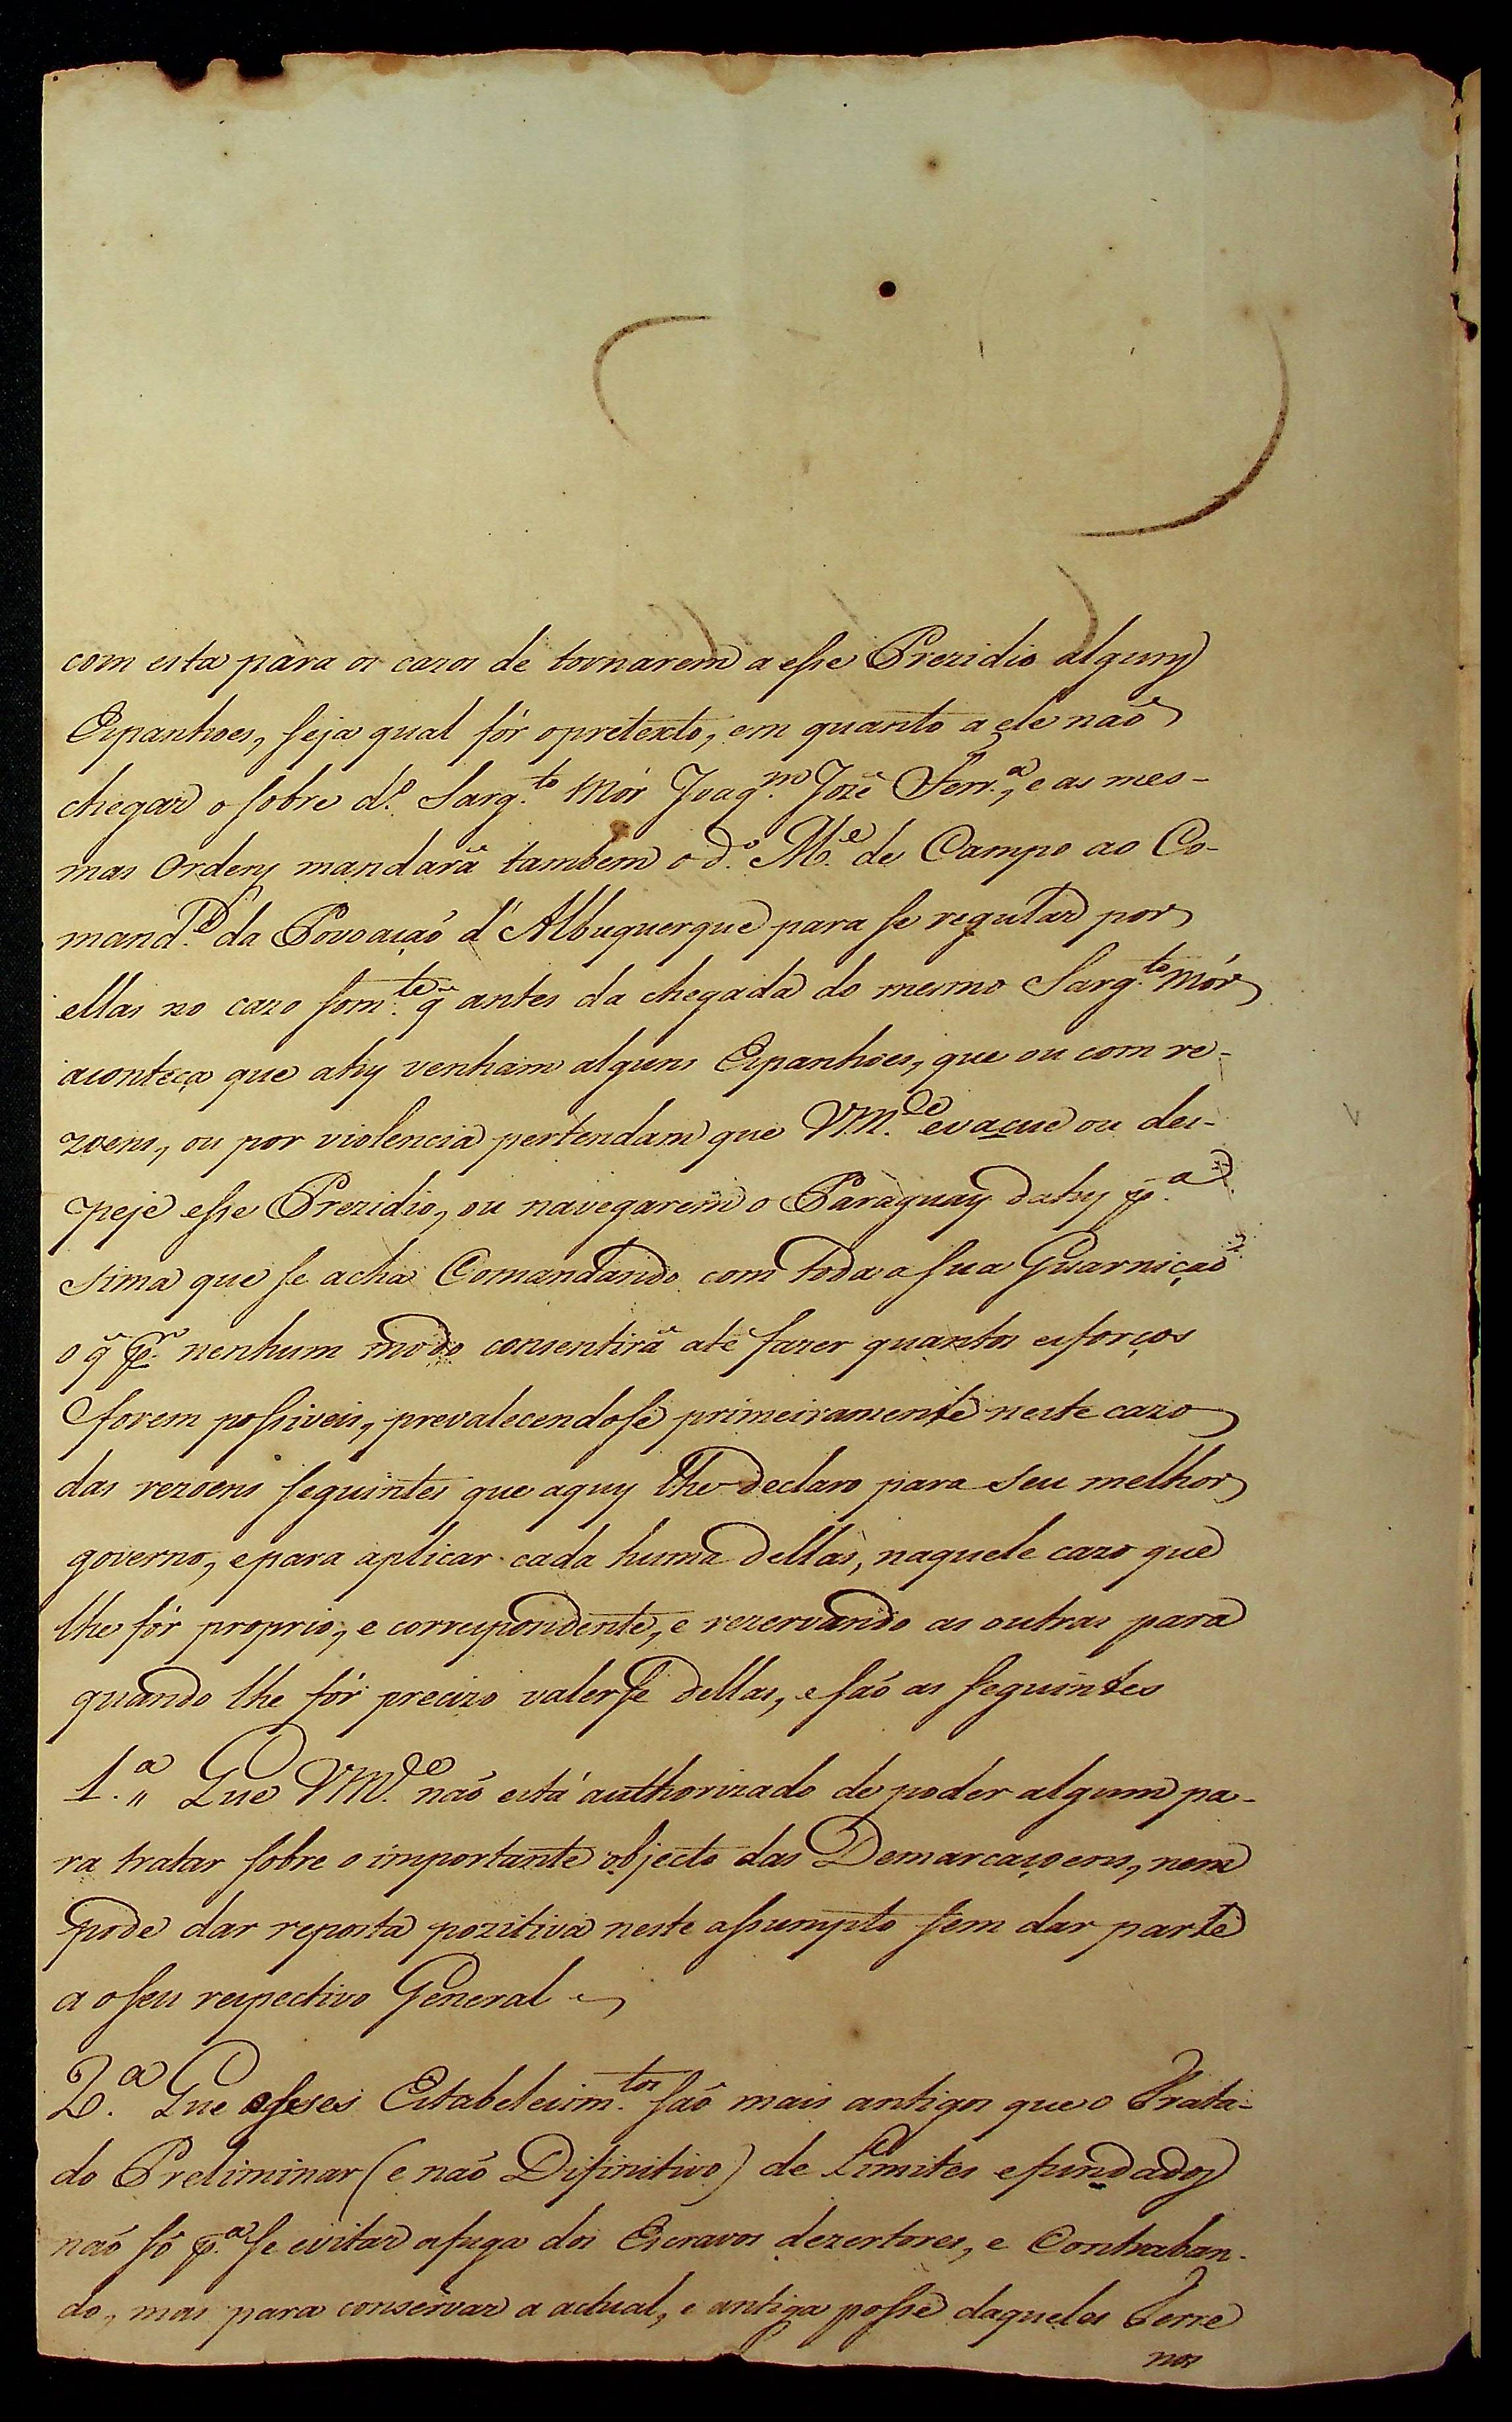 com esta para os cazos de tornarem a esse Prezidio alguns
Espanhoes, seja qual fór opretexto, em quanto a ele naõ
chegar o sobre d.º Sarg.to Mór Joaq.m Jozé Ferr.a, e as mes-
mas Ordens mandará tambem o d.º M.e de Campo ao Co-
mand.e da Povoaçaõ d'Albuquerque para se regular por
ellas no cazo som.te q̃ antes da chegada do mesmo Sarg.to Mór
aconteça que ahy venham alguns Espanhoes, que ou com re-
zoens, ou por violencia pertendam que VM.ce evacue ou des-
peje esse Prezidio, ou navegarem o Paraguay dahy p.a
sima que se acha Comandando com toda a sua Guarniçaõ
o q̃ p.r nenhum modo consentirá até fazer quantos esforços
forem possiveis, prevalecendose primeiramente neste cazo
das rezoens seguintes que aquy lhe declaro para seu melhor
governo, epara aplicar cada huma dellas, naquele cazo que
lhe fór proprio, e correspondente, e rezervando as outras para
quando lhe fór precizo valerse dellas, esaõ as seguintes
1.a „ Que VM.ce naõ está authorizado de poder algum pa-
ra tratar sobre o importante objecto das Demarcaçoens, nem
pode dar reposta pozitiva neste assumpto sem dar parte
a oseu respectivo General
2.a Que esses Estabelecim.tos saõ mais antigos que o Trata-
do Preliminar (e naõ Difinitivo) de Limites efundados
naõ só p.a se evitar afuga dos Escravos dezertores, e Contraban-
do, mas para conservar a actual, e antiga posse daqueles Terre
nos